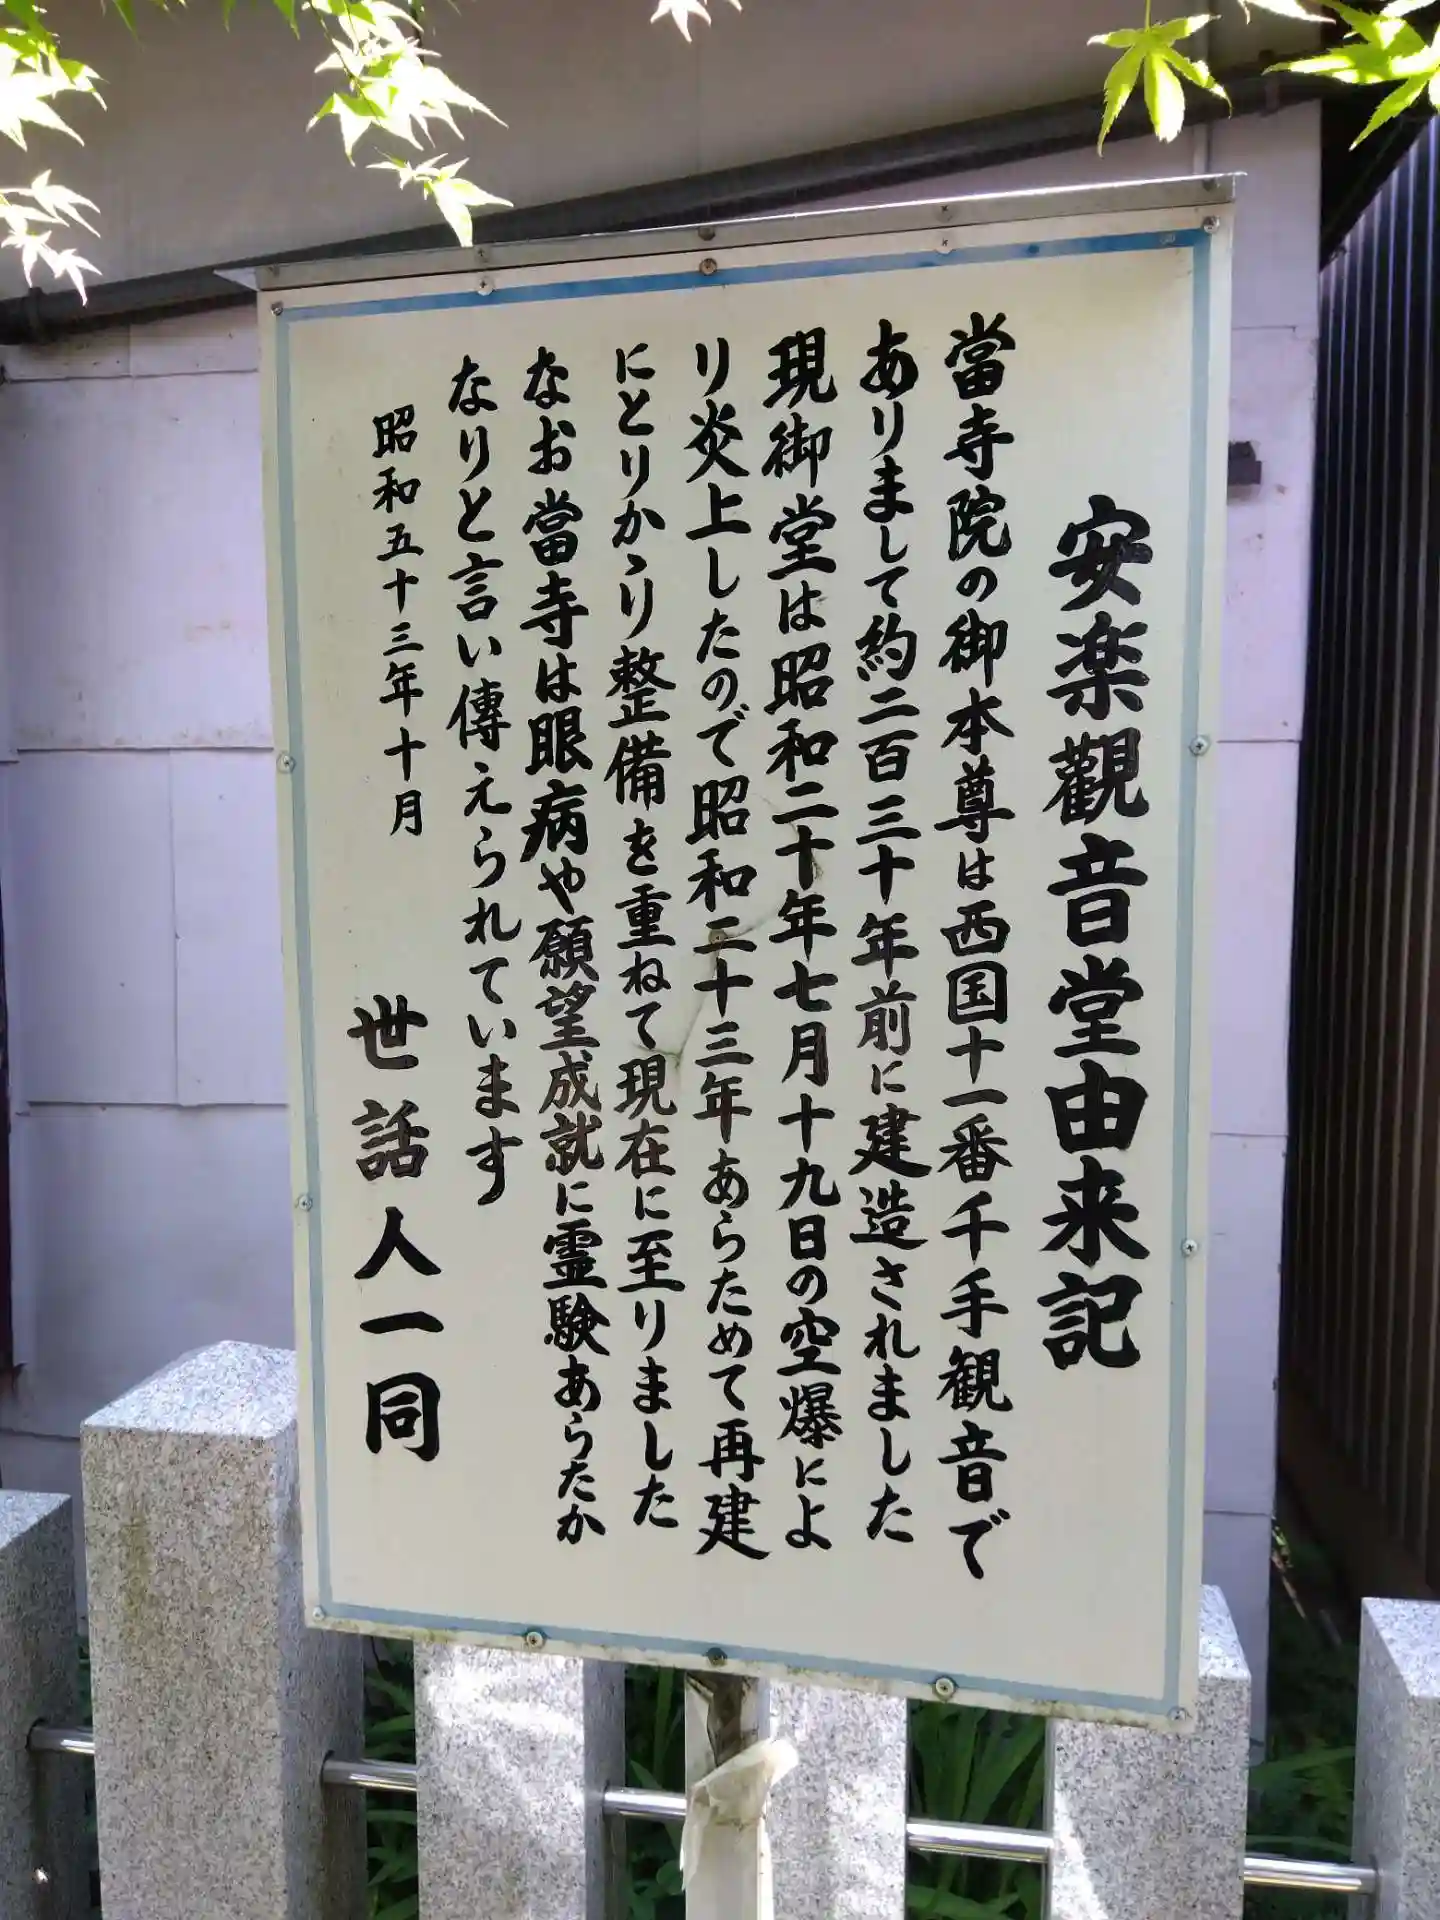 安楽觀音堂由来記
當寺院の御本尊は西国十一番千手観音で
ありまして約二百三十年前に建造されました
現御堂は昭和二十年七月十九日の空爆によ
り炎上したので昭和二十三年あらためて再建
にとりかゝり整備を重ねて現在に至りました
なお當寺は眼病や願望成就に霊験あらたか
なりと言い傳えられています
昭和五十三年十月
世話人一同